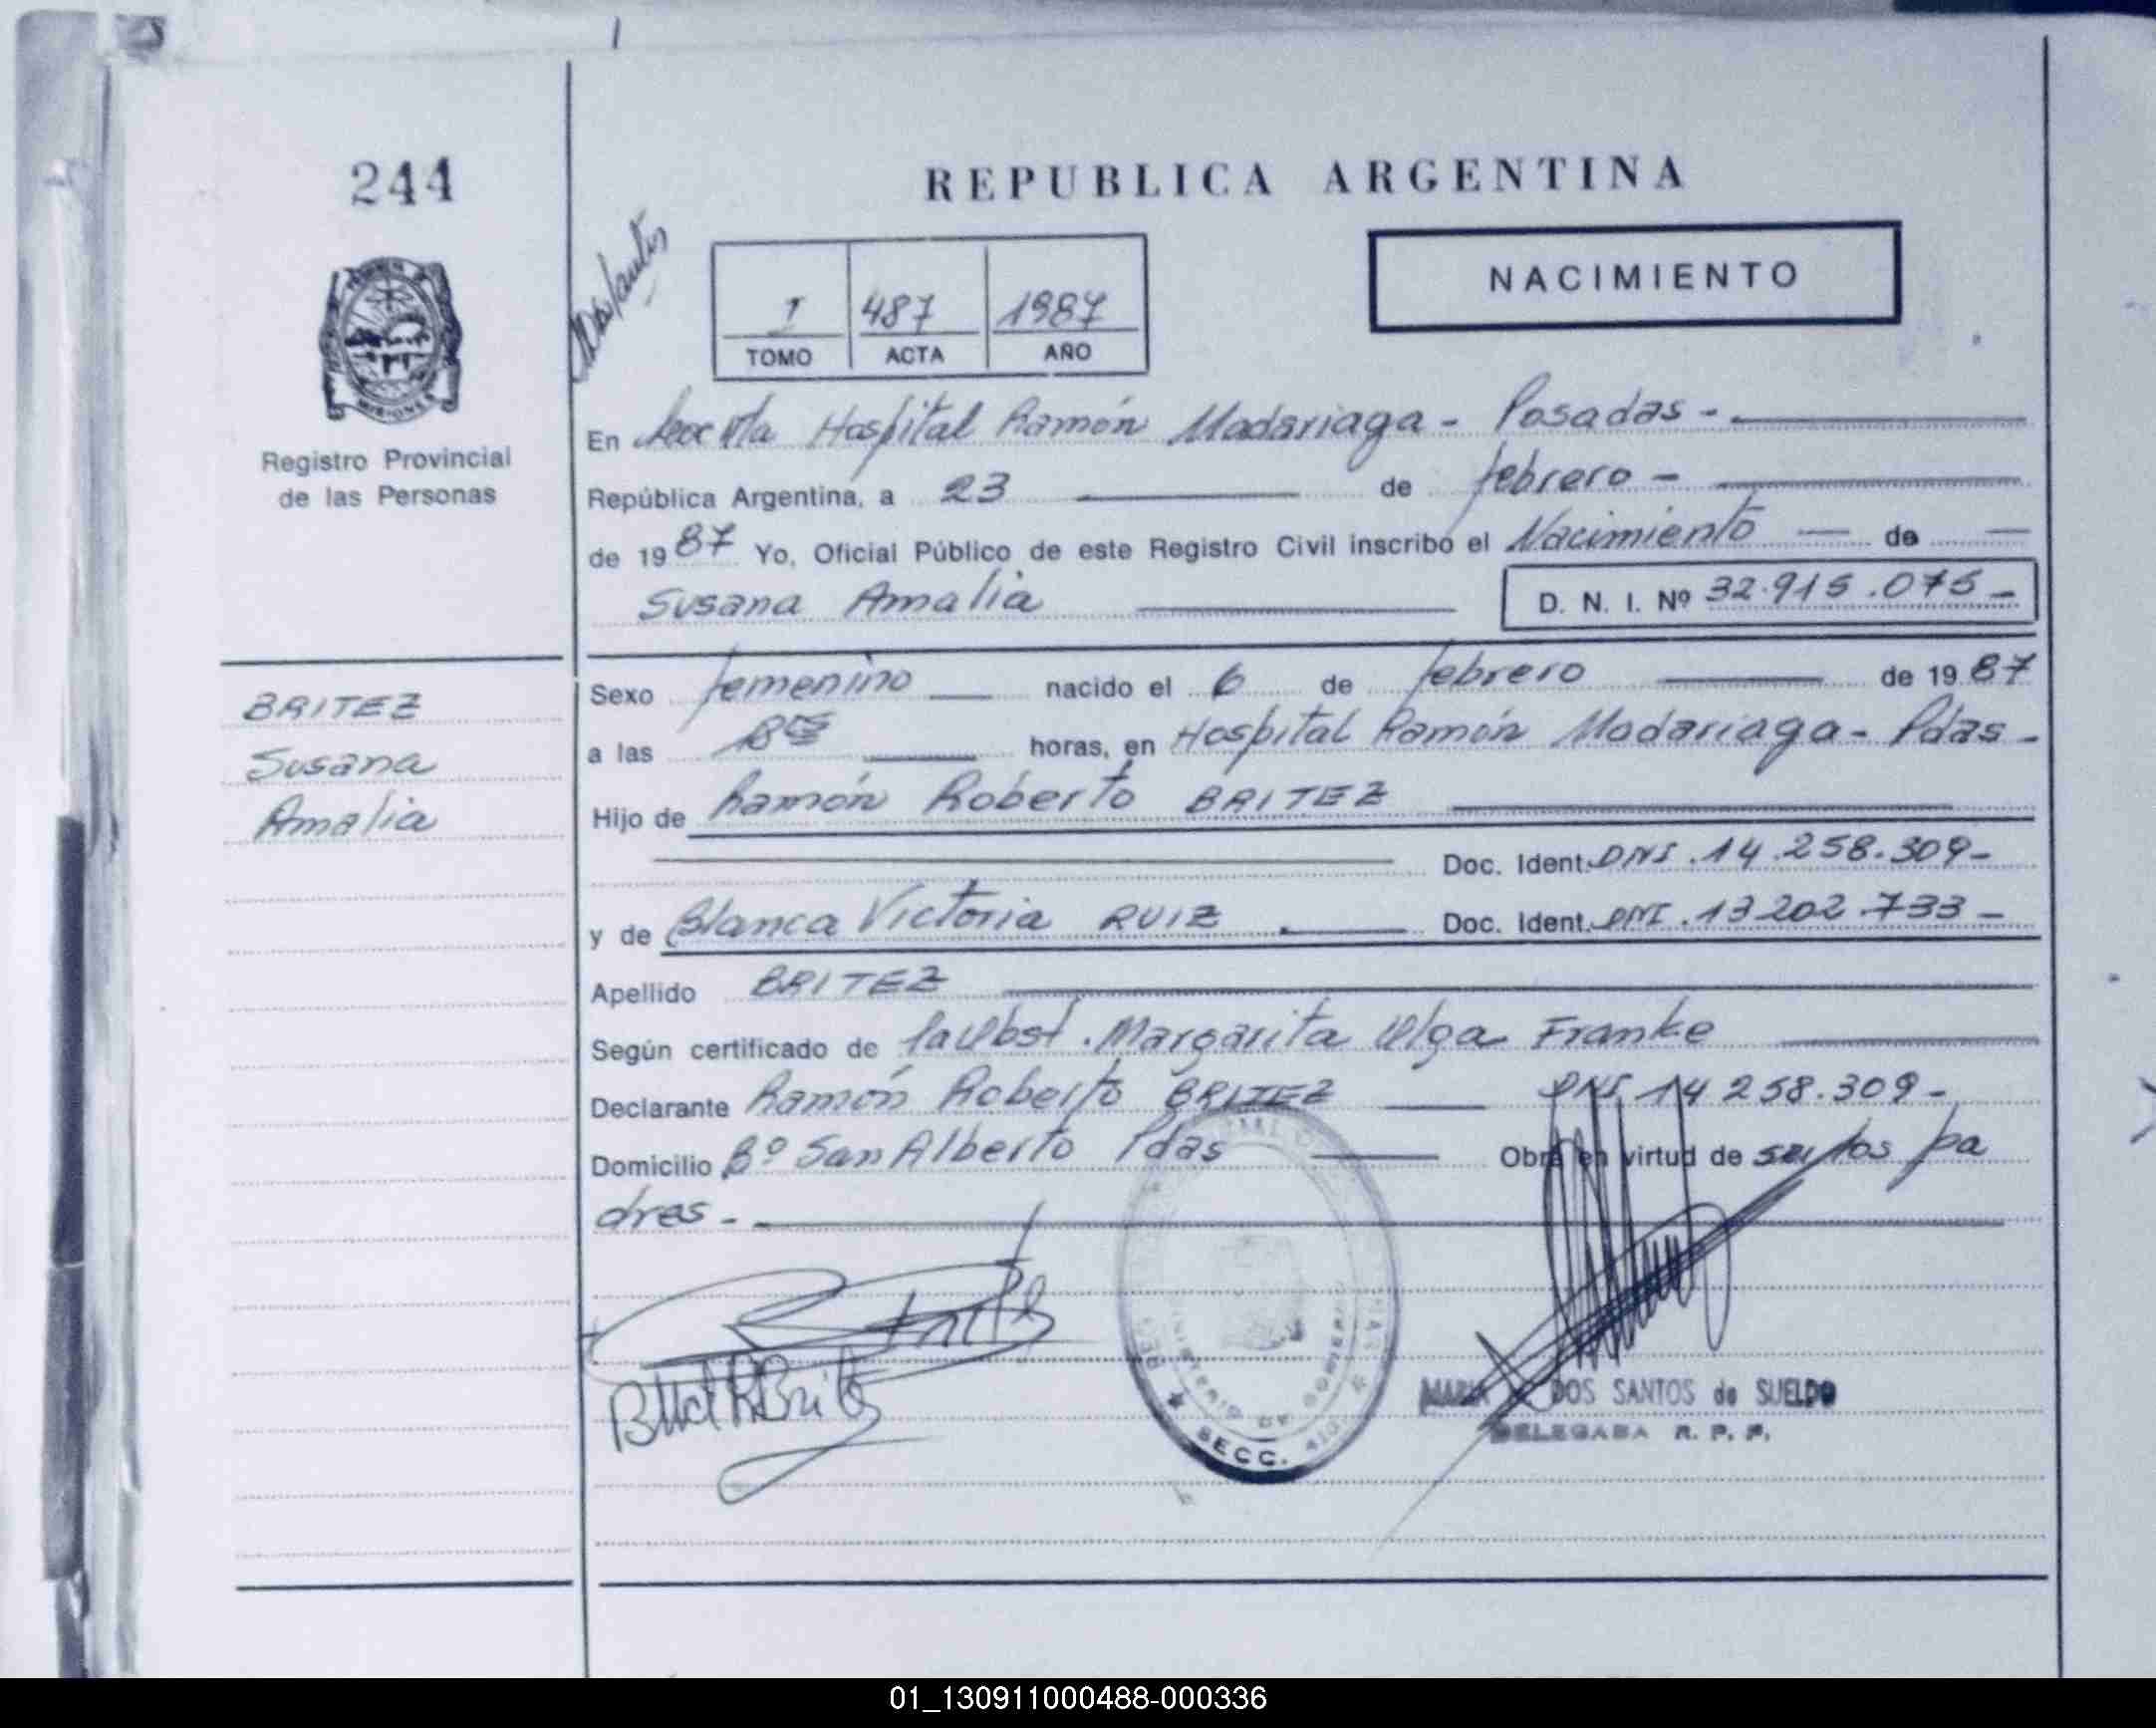 244
REPUBLICA ARGENTINA
NACIMIENTO
I 487 1987
TOMO ACTA AÑO
MISIONES
Registro Provincial
de las Personas
En Secc Hospital Ramón Madariaga - Posadas -
República Argentina, a 23 de febrero -
de 1987 Yo, Oficial Público de este Registro Civil inscribo el Nacimiento de
Susana Amalia D. N. I. Nº 32.915.075 -
BRITEZ
Susana
Amalia
Sexo femenino nacido el 6 de febrero de 1987
a las horas, en Hospital Ramón Madariaga - Pdas -
Hijo de Ramón Roberto BRITEZ
Doc. Ident. DNI. 14.258.309 -
y de Blanca Victoria RUIZ Doc. Ident. DNI. 13202.733 -
Apellido BRITEZ
Según certificado de la Obst. Margarita Olga Franke
Declarante Ramón Roberto BRITEZ DNI 14 258.309 -
Domicilio Bº San Alberto Pdas Obra en virtud de ser los pa
dres -
MINISTERIO DE GOBIERNO
SECC.
MARIA DOS SANTOS de SUELDO
DELEGADA R. P. P.
01_130911000488-000336